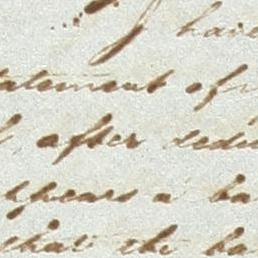 I have
tatement of
after dedu
ppears a ba
that the ba